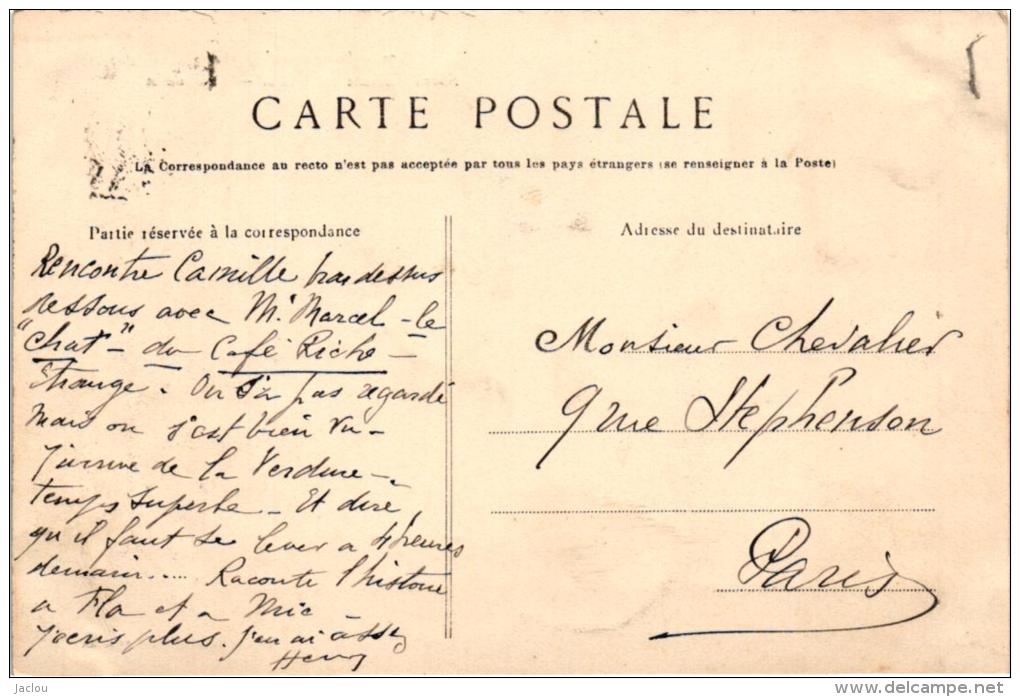 CARTE POSTALE
La Correspondance au recto n'est pas acceptée par tous les pays étrangers (se renseigner à la Poste)
Partie réservée à la correspondance
Rencontre Camille bras dessus
dessous avec Mr Marcel - le
"chat" - du Café Riche -
Étrange. On s'a pas regardé
mais on s'est bien vu -
J'arrive de la Verdure -
temps superbe - Et dire
qu'il faut se lever a 4 heures
demain..... Raconte l'histoire
a Flo et a Mic
J'ecris plus. J'en ai assez
Henry
Adresse du destinataire
Monsieur Chevalier
9 rue Stephenson
Paris
Jaclou
www.delcampe.net